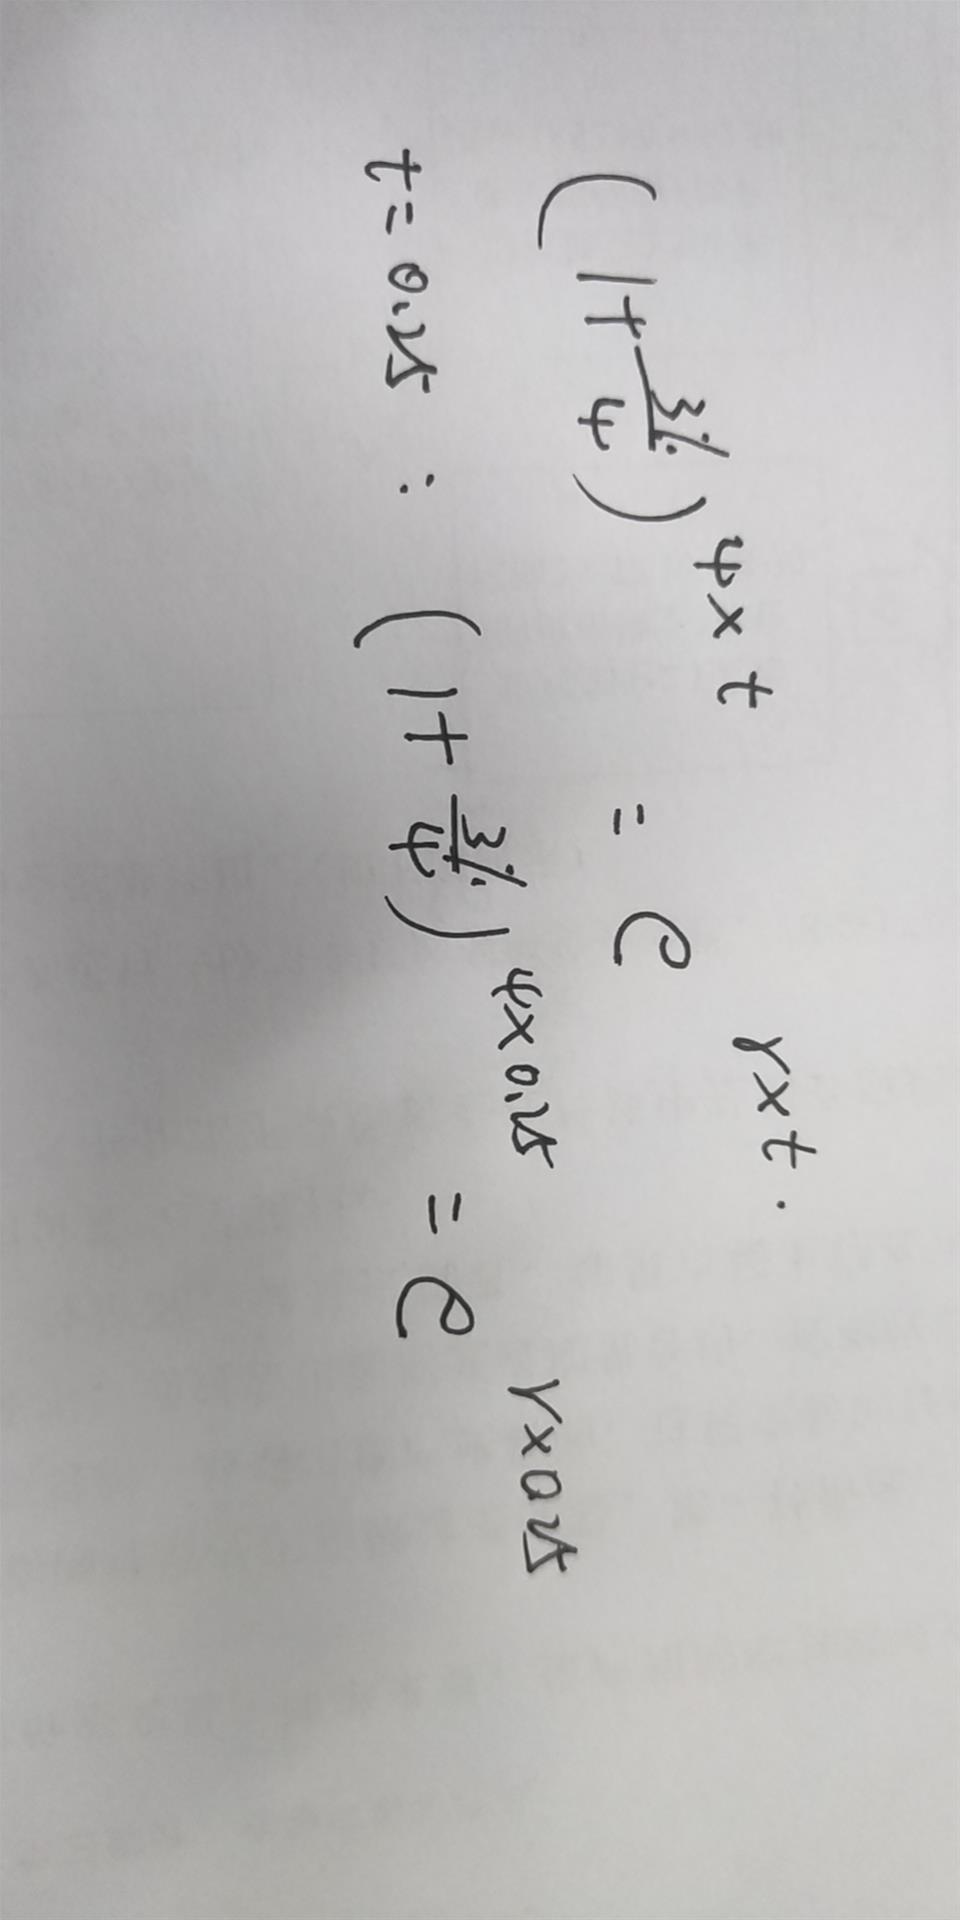 (1+3%/4)^(4×t) = e^(r×t).
t=0.25 : (1+3%/4)^(4×0.25) = e^(r×0.25)